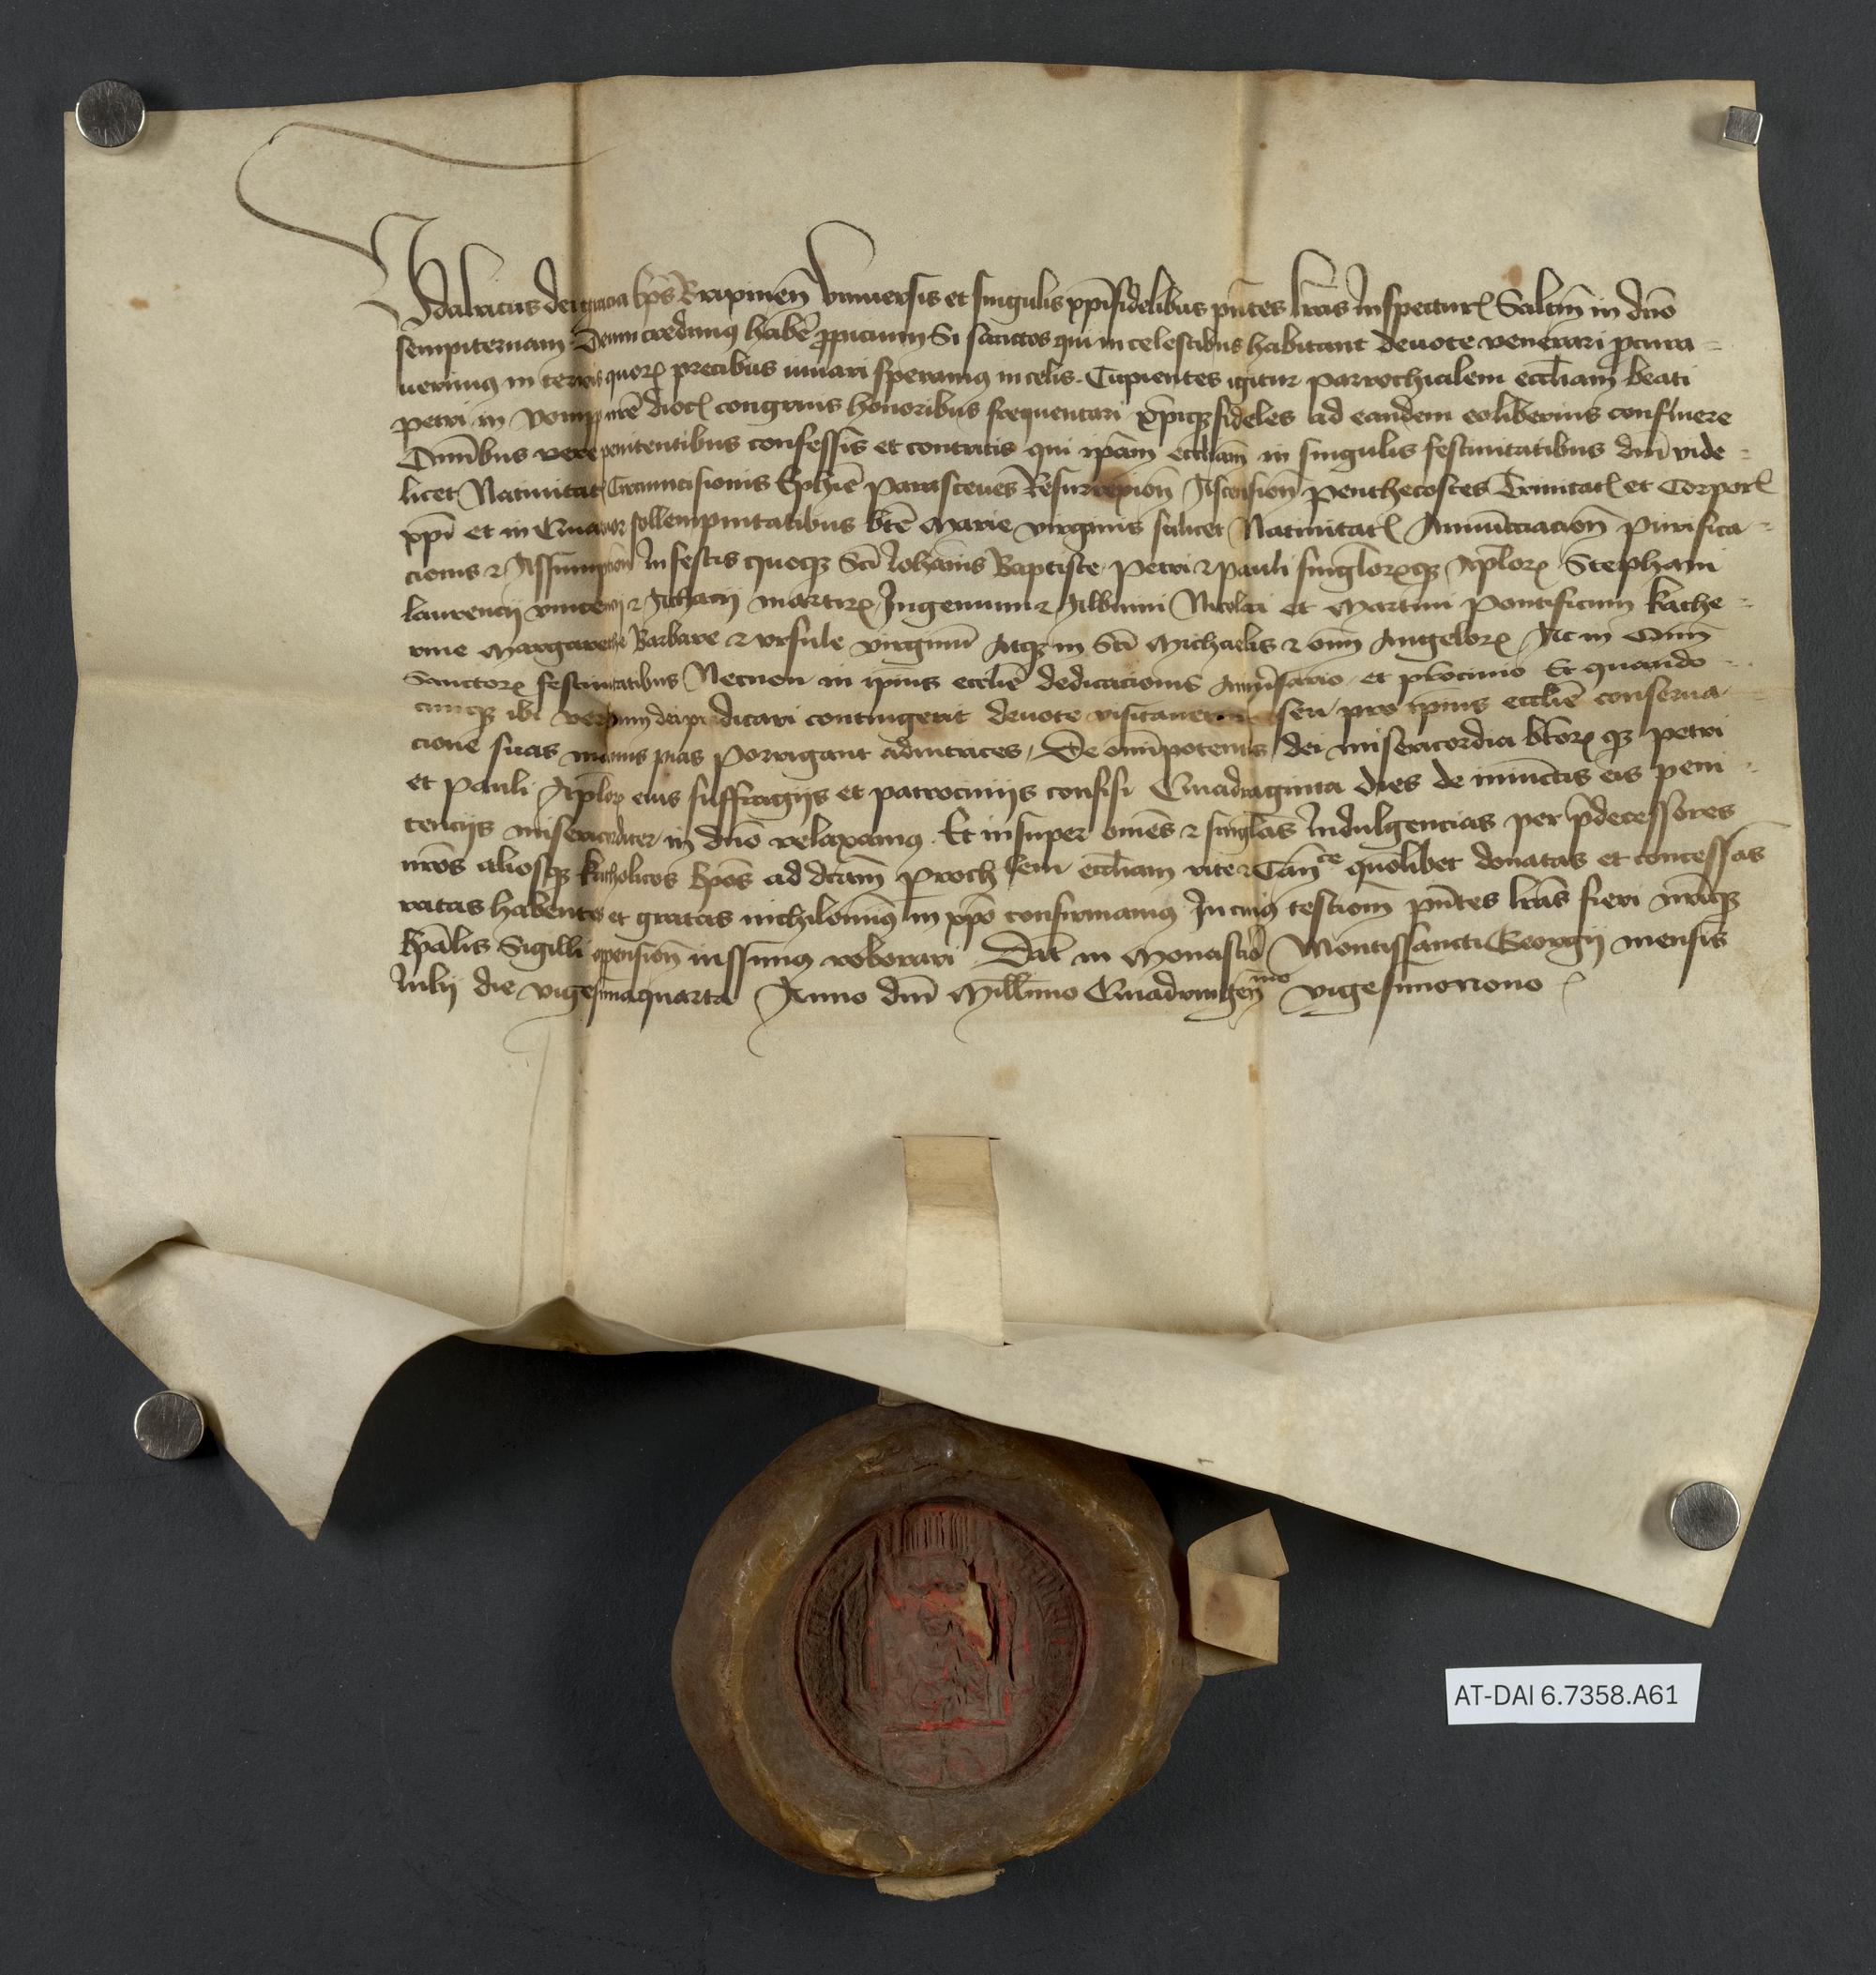 Udalricus dei gracia Ep̄s Brixineñ Vniuersis et singulis xp̄ifidelibus pn̄tes lr̄as Inspecturꝭ Saltm̄ in dn̄o
sempiternam. Deum credimꝰ habēe ꝓpicium Si sanctos qui in celestibus habitant deuote venerari ꝓcura=
uerimꝰ in terris quorꝝ precibus iuuari speramꝰ in celis. Cupientes igitur parrochialem eccl̄iam beati
petri in vomp nr̄e diocꝭ congruis honoribus frequentari xp̄iqꝫ fideles ad eandem eoliberius confluere
Omībus vere penitentibus confessis et contritis qui ip̄am eccl̄iam in singulis festiuitatibus dn̄i vide=
licet Natiuitatꝭ Circumcisionis Ephīe Parasceues Resurrexion̄ Ascension̄ Penthecostes Trinitatꝭ et Corporꝭ
xp̄i et in Quatuor sollempnitatibus bt̄e Marie virginis scilicet Natiuitatꝭ Annūcciacion̄ Purifica=
cionis ⁊ Assumption̄ In festis quoqꝫ Scī Ioha̅nis Baptiste Petri ⁊ Pauli singl̄orꝝqꝫ Apl̄orꝝ Stephani
laurencij vincencij ⁊ Achacij martirꝝ Ingenuini ⁊ Albuini Nicolai et Martini Pontificum Kathe=
rine Margarethe Barbare ⁊ vrsule virginū Atqꝫ in Scī Michaelis ⁊ om̄ Angelorꝝ Ac in Om̄
Sanctorꝝ festiuitatibus Necnon in ip̄ius eccl̄ie dedicacionis Anniu̅sario et pr̄ocinio Et quando=
cunqꝫ ibi verbum dei predicari contingerit deuote visitauerint seu pro ip̄ius eccl̄ie conserua=
cione suas manus pias porrigant adiutrices, De omīpotentis dei misericordia bt̄orꝝ qꝫ petri
et Pauli Apl̄orꝝ eius suffragijs et patrocinijs confisi Quadraginta dies de iniūctis eis peni=
tencijs misericorditer in dn̄o relaxamꝰ. Et insuper omēs ⁊ singl̄as Indulgencias per p̄decessores
nr̄os aliosqꝫ katholicos Ep̄os ad dc̄am Proch lem eccl̄iam rite ⁊ Can̄ce quol̄ibet donatas et concessas
ratas habentes et gratas nichilomiꝰ in xp̄o confirmamꝰ In cuiꝰ testiom̄ pn̄tes lr̄as fieri nr̄iqꝫ
Ep̄alis Sigilli appension̄ iussimꝰ roborari Dat̄ in Monastio Montissancti Georgij mensis
Iulij die vigesimaquarta Anno dn̄i Mill̄imo Quadringen̄mo vigesimonono
AT-DAI 6.7358.A61